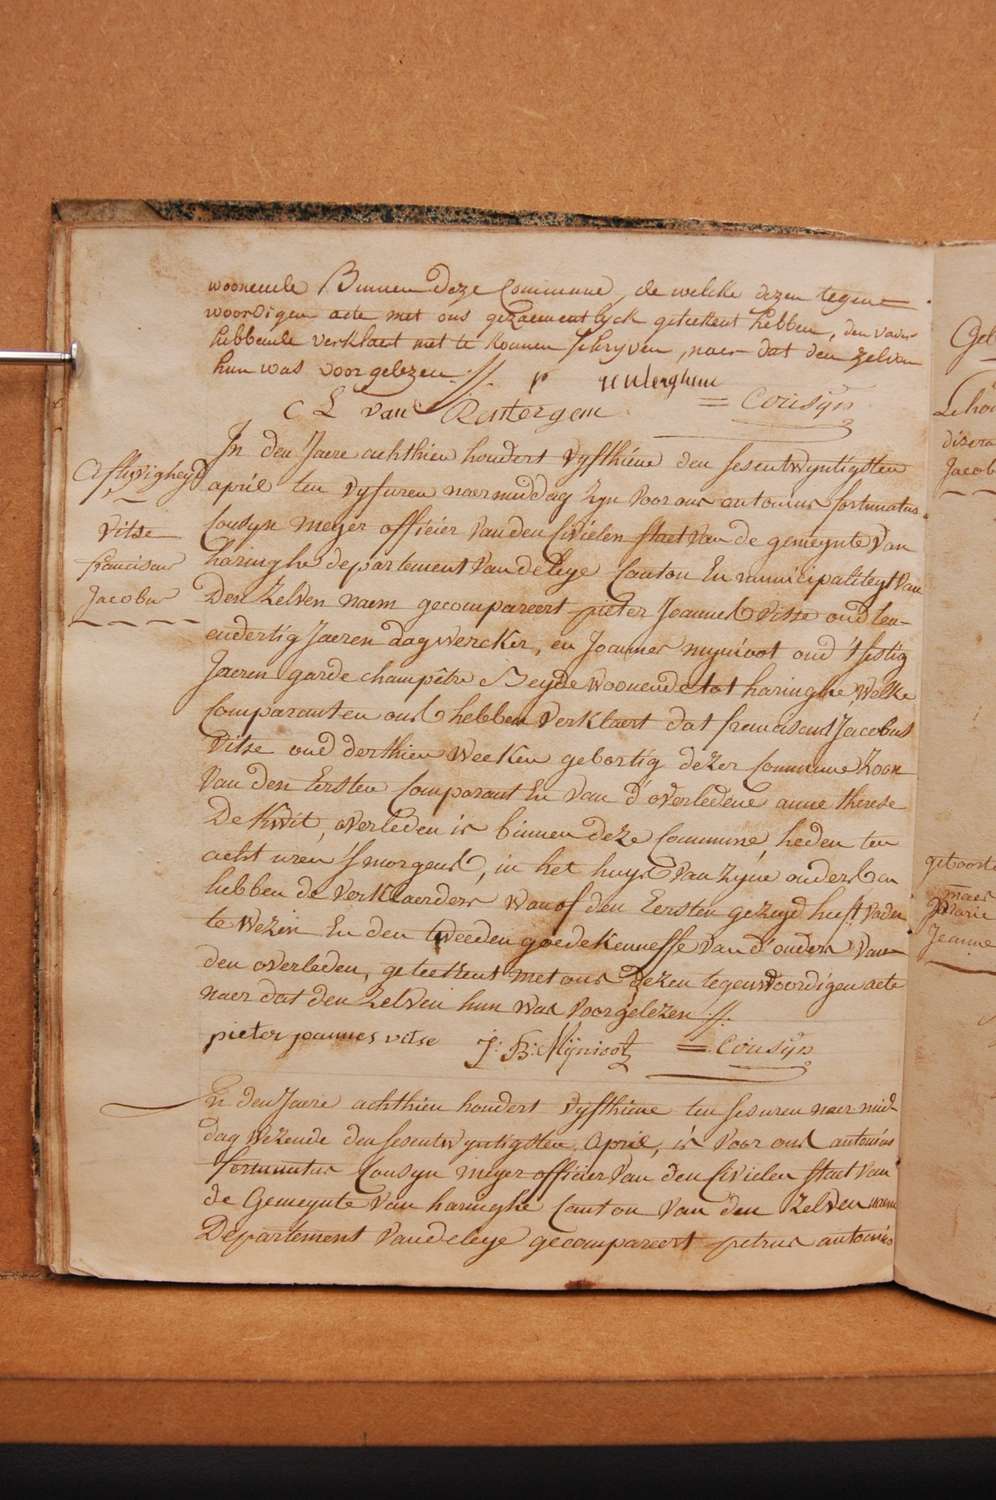 woonende Binnen deze Commune, de welcke dezen tegen=
woordigen acte met ons gezaementlyck geteekent hebben, den vader
hebbende verklaert niet te konnen schryven, naer dat den zelven
hun was voorgelezen ./.
C L van Renterghem = Cousijn
In den Jaere achthien hondert vyfthiene den sesentwyntigsten
april ten vyf uren naermiddag zyn voor ons antonius fortunatus
Cousyn meyer officier van den Civielen staet van de gemeynte van
haringhe departement van de leye Canton En municipaliteyt van
Den zelven naem gecompareert pieter Joannes Vitse oud een-
endertig Jaeren dagwercker, en Joannes mynivot oud 't sestig
Jaeren garde champêtre Beyde woonende tot haringhe, Welke
Comparanten ons hebben verklaert dat franciscus Jacobus
Vitse oud derthien weeken gebortig dezer Commune Zoon
van den Eersten Comparant En van d'overledene anne therese
De Kwit, overleden is binnen deze Commune heden ten
acht uren s'morgens, in het huys van zyne ouders En
hebben de verklaerders waer of den Eersten gezeyd heeft vader
te wezen En den tweeden goede kennesse van d'ouders van
den overleden, geteekent met ons dezen tegenwoordigen acte
naer dat den zelven hun was voorgelezen ./.
pieter joannes vitse J: B: Mijnivoot = Cousijn
In den Jaere achthien hondert vyfthiene ten ses uren naer mid-
dag wezende den sesentwyntigsten April, is voor ons antonius
fortunatus Cousyn meyer officier van den Civielen staet van
de Gemeynte van haringhe Canton van den zelven naem
Departement van de leye gecompareert petrus antonius
Aflyvigheyd
Vitse
franciscus
Jacobus
Jacob
geboorte
maes
Marie
Jeanne